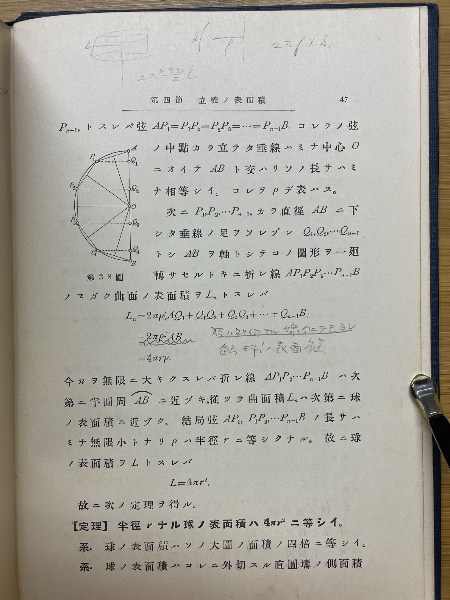 2πρ l S.
第四節 立體ノ表面積 47
Pₙ₋₁, トスレバ弦 AP₁=P₁P₂=P₂P₃=⋯=Pₙ₋₁B. コレラノ弦
ノ中點カラ立テタ垂線ハミナ中心 O
ニオイテ AB ト交ハリソノ長サハミ
ナ相等シイ. コレヲ ρ デ表ハス.
次ニ P₁,P₂,⋯Pₙ₋₁, カラ直徑 AB ニ下
シタ垂線ノ足ヲソレゾレ Q₁,Q₂,⋯Qₙ₋₁
トシ AB ヲ軸トシテコノ圖形ヲ一廻
轉サセルトキニ折レ線 AP₁P₂P₃⋯Pₙ₋₁B
第38圖
ノエガク曲面ノ表面積ヲ Lₙ トスレバ
Lₙ=2πρ(AQ₁+Q₁Q₂+Q₂Q₃+⋯+Qₙ₋₁B)
=2πρ·AB
=4πrρ.
今 n ヲ無限ニ大キクスレバ折レ線 AP₁P₂⋯Pₙ₋₁B ハ次
第ニ半圓周 AB ニ近ヅキ, 從ツテ曲面積 Lₙ ハ次第ニ球
ノ表面積ニ近ヅク. 結局弦 AP₁, P₁P₂⋯Pₙ₋₁B ノ長サハ
ミナ無限小トナリ ρ ハ半徑 r ニ等シクナル. 故ニ球
ノ表面積ヲ L トスレバ
L=4πr².
故ニ次ノ定理ヲ得ル.
【定理】 半徑 r ナル球ノ表面積ハ 4πr² ニ等シイ。
系. 球ノ表面積ハソノ大圓ノ面積ノ四倍ニ等シイ。
系. 球ノ表面積ハコレニ外切スル直圓壔ノ側面積